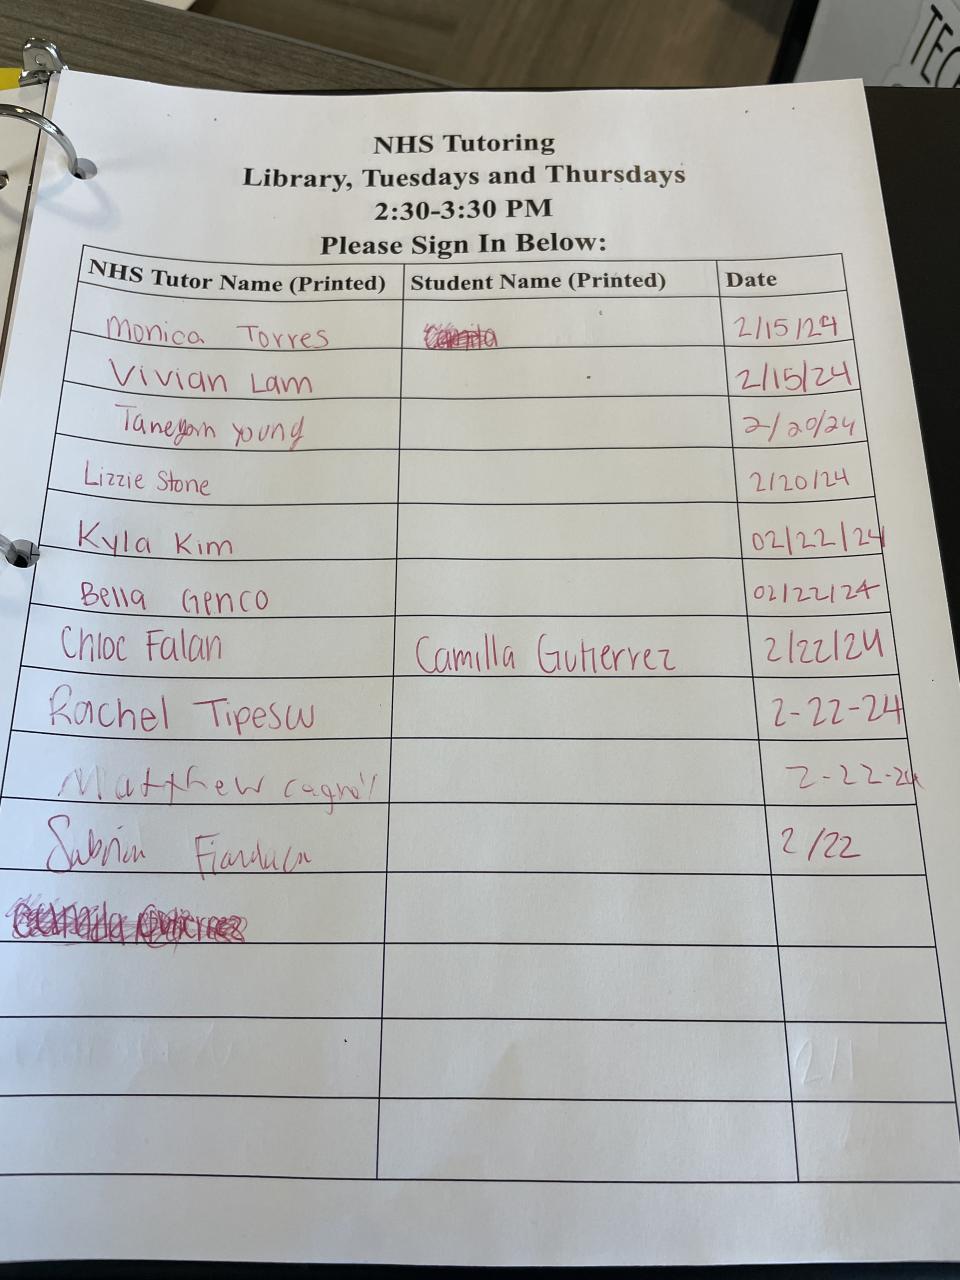 TEC
NHS Tutoring
Library, Tuesdays and Thursdays
2:30-3:30 PM
Please Sign In Below:
NHS Tutor Name (Printed) Student Name (Printed) Date
Monica Torres 2/15/24
Vivian Lam 2/15/24
Young 2/20/24
Lizzie Stone 2/20/24
Kyla Kim 02/22/24
Bella Genco 02/22/24
Chloe Falan Camilla Gutierrez 2/22/24
Rachel Tipesw 2-22-24
Matthew 2-22-24
2/22